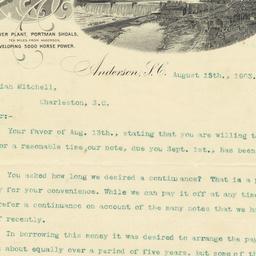 WER PLANT, PORTMAN SHOALS,
TEN MILES FROM ANDERSON,
VELOPING 5000 HORSE POWER.
Anderson, S.C. August 15th., 1903.
ian Mitchell,
Charleston, S.C.
r:-
Your favor of Aug. 13th., stating that you are willing to
or a resonable time, our note, due you Sept. 1st., has been
You asked how long we desired a continuance? That is a
y for your convenience. While we can pay it off at any tim
refer a continuance on account of the many notes that we h
f recently.
In borrowing this money it was desired to arrange the pay
s about equally over a period of five years, but some of th